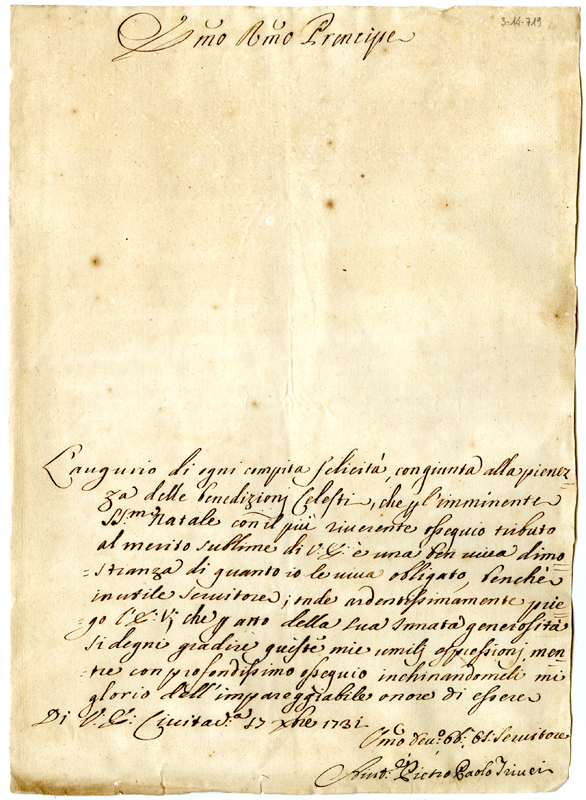 3-14-719
Prencipe
L'augurio di ogni compita felicità, congiunta alla pienez=
=za delle benedizionj Celesti, che p l'imminente
SS.mo Natale con il più riverente ossequio tributo
al merito sublime di V: E: è una ben viva dimo=
=stranza di quanto io le viva obligato, benchè
inutile Servitore; onde ardentissimamente prie=
=go l'E: V; che p atto della sua Innata generosità
si degni gradire queste mie umilj espressionj men=
=tre con profondissimo ossequio inchinandomeli mi
glorio dell'impareggiabile onore di essere
Di V: E: Civitav.a 17 Xbre 1731
Servitore
Pietro Paolo